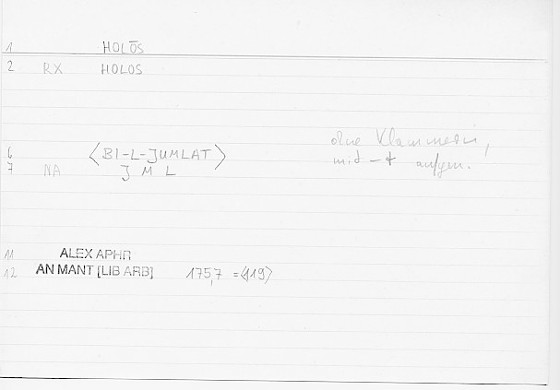 1 HOLŌS
2 RX HOLOS
6 〈BI-L-JUMLAT〉 ohne Klammern,
7 NA J M L mit + aufgen.
11 ALEX APHR
12 AN MANT [LIB ARB] 175,7 = 〈119〉